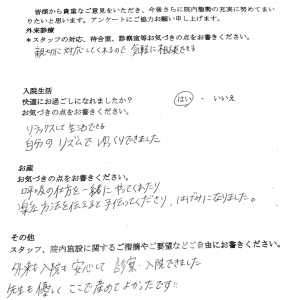 皆様から貴重なご意見をいただき、今後さらに院内態勢の充実に努めてまい
りたいと思います。アンケートにご協力お願い申し上げます。
外来診療
*スタッフの対応、待合室、診察室等お気づきの点をお書きください。
親切に対応してくれるので気軽に相談できる
入院生活
快適にお過ごしになれましたか？ はい ・ いいえ
お気づきの点をお書きください。
リラックスして生活できる
自分のリズムでゆっくりできました
お産
お気づきの点をお書きください。
呼吸の仕方を一緒にやってくれたり
楽な方法を伝えると手伝ってくださり、はげみになりました。
その他
スタッフ、院内施設に関するご指摘やご要望などご自由にお書きください。
外来も入院も安心して診察・入院できました
先生も優しくここで産めてよかったです!!